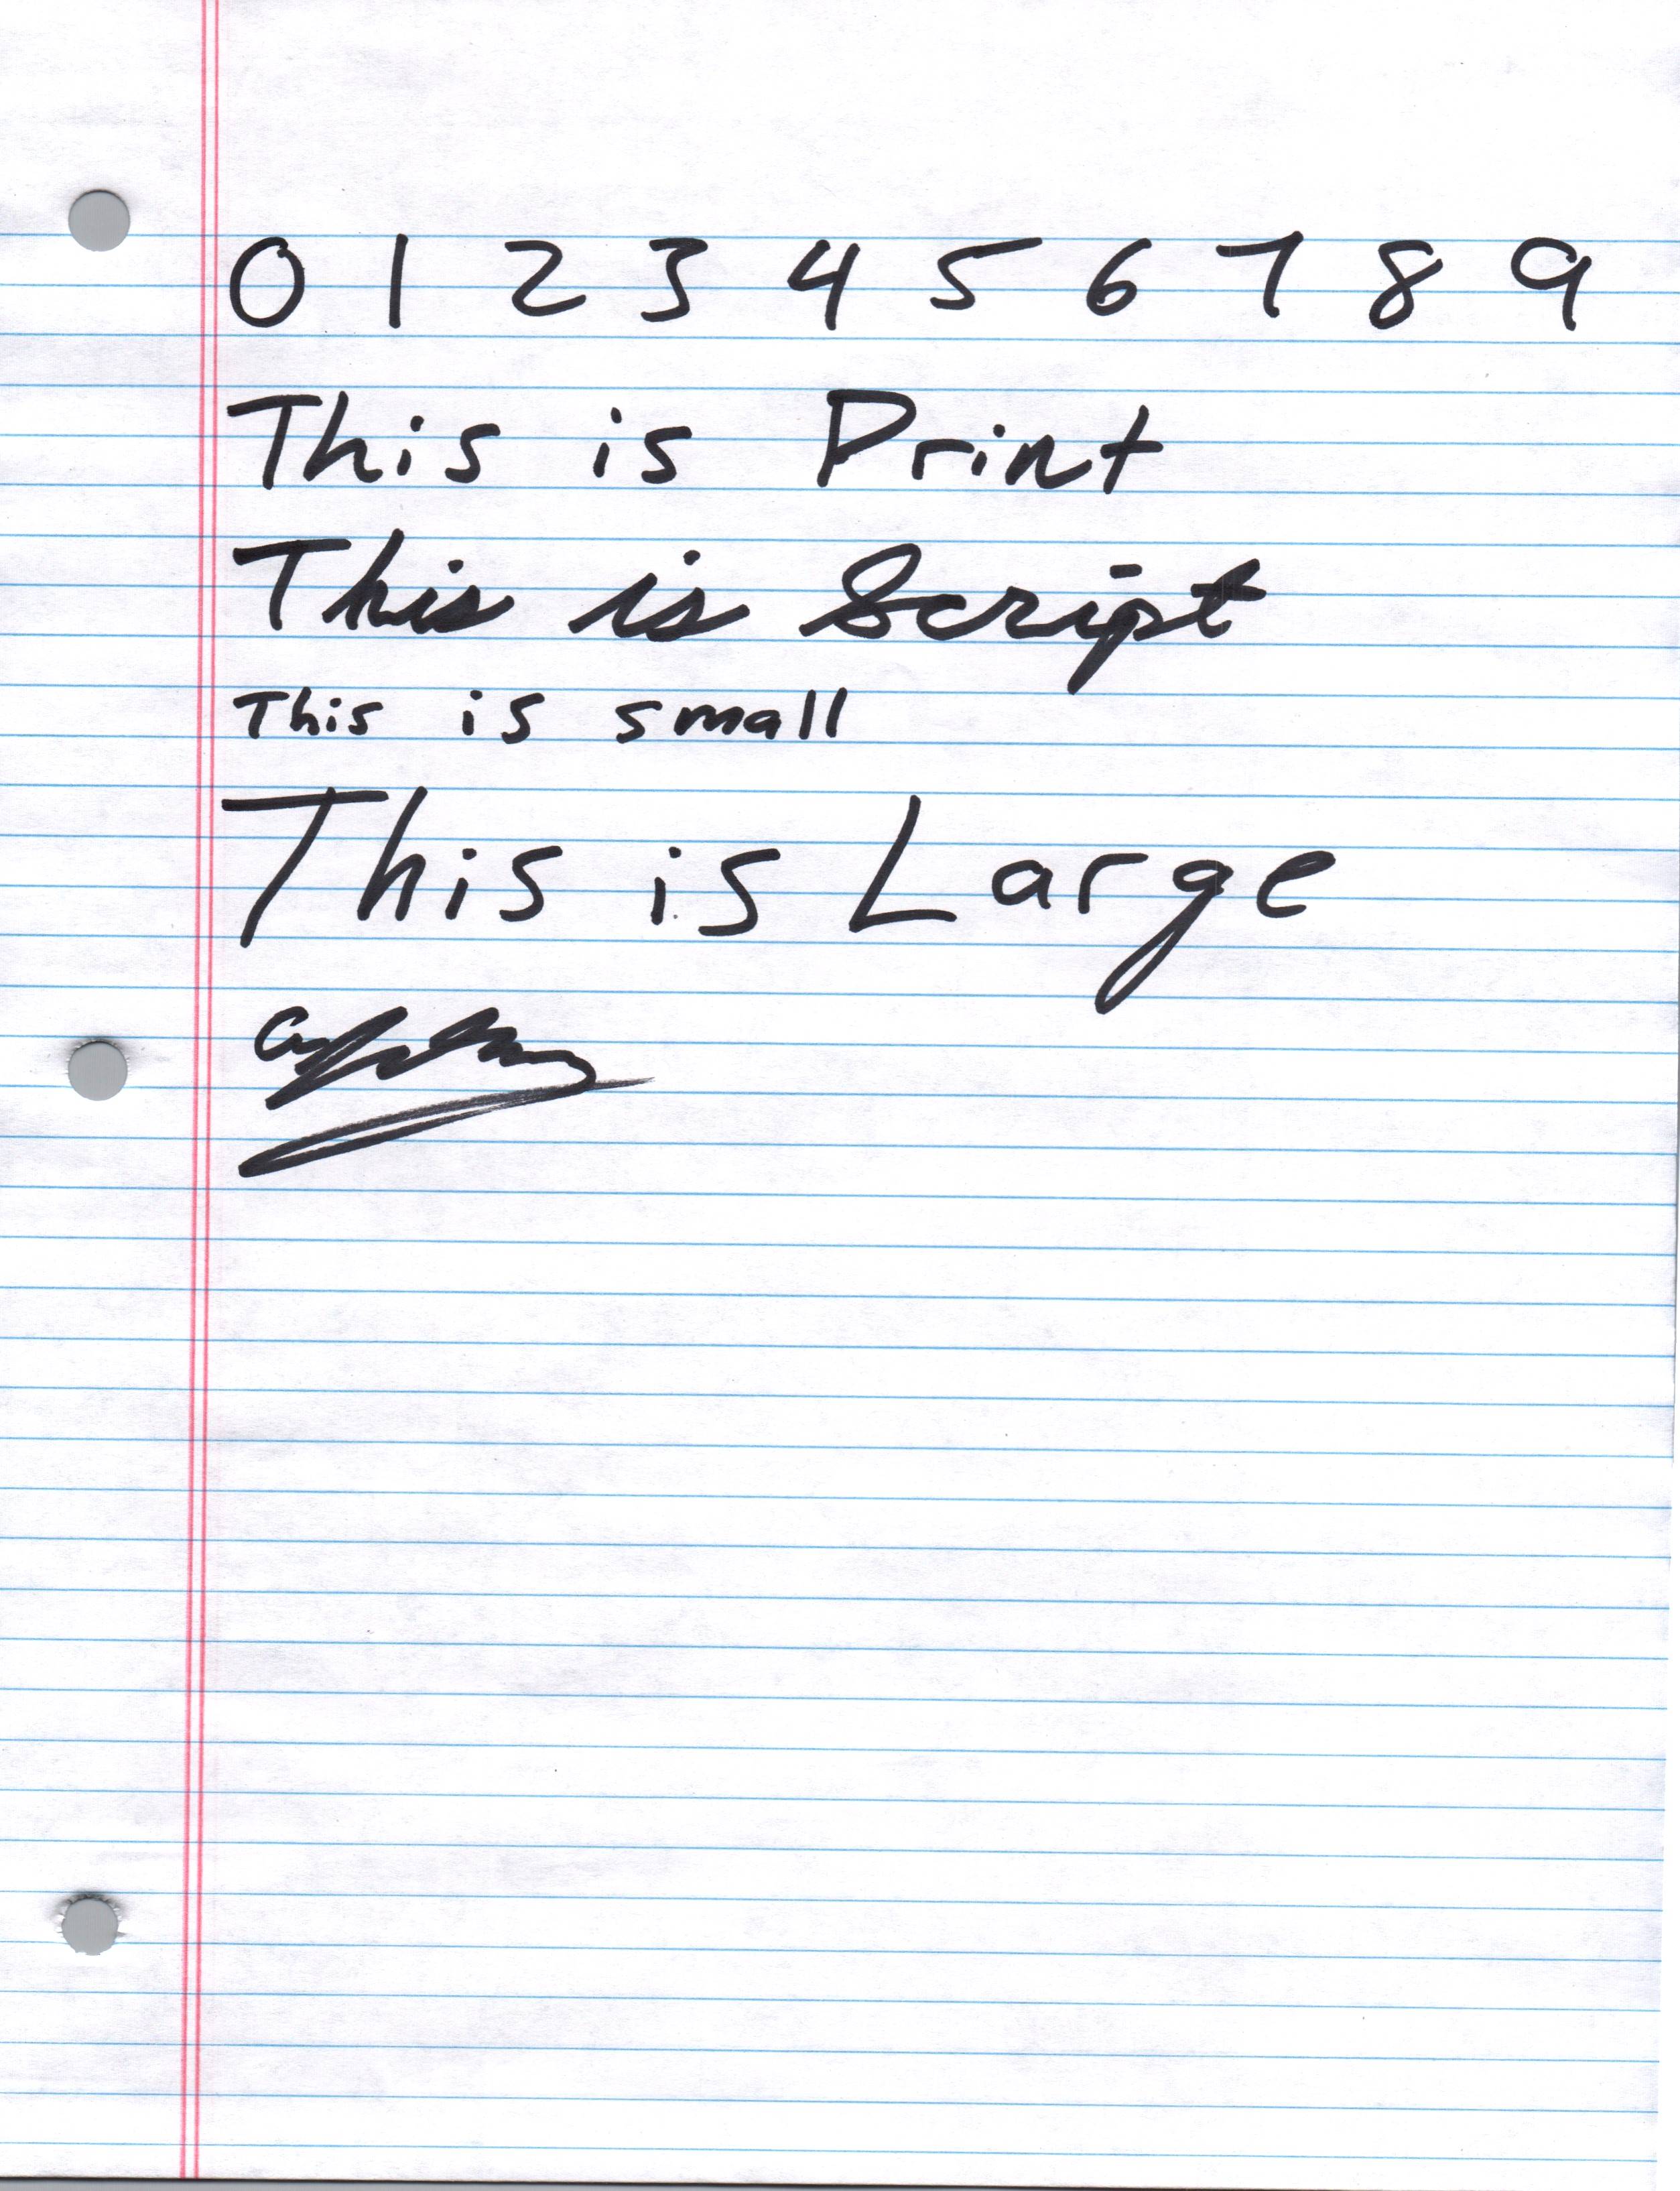 0 1 2 3 4 5 6 7 8 9
This is Print
This is Script
This is small
This is Large